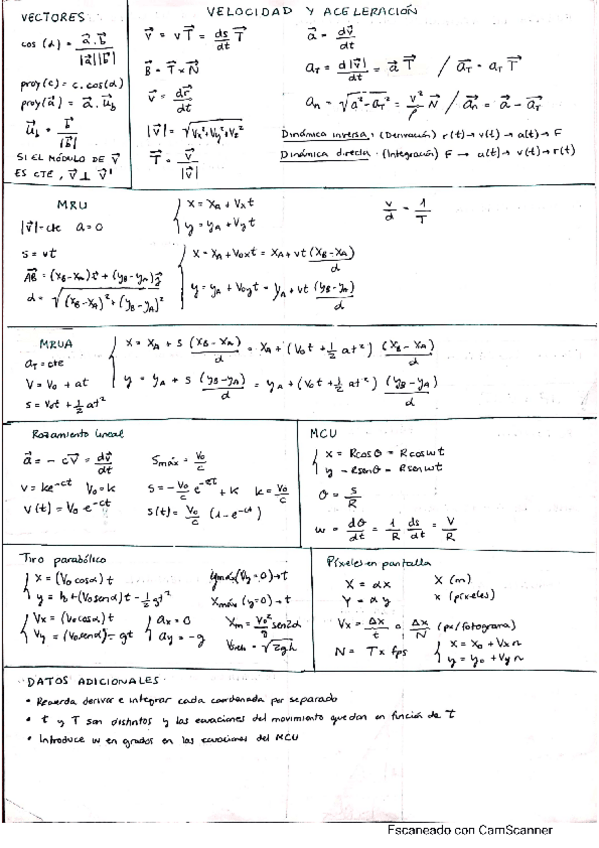 VECTORES
cos (α) = a⃗ . b⃗ / |a⃗||b⃗|
proy(c) = c . cos(α)
proy(a⃗) = a⃗ . u⃗b
u⃗b = b⃗ / |b⃗|
SI EL MÓDULO DE v⃗
ES CTE, v⃗ ⊥ v⃗'
VELOCIDAD Y ACELERACIÓN
v⃗ = v T⃗ = ds/dt T⃗
B⃗ = T⃗ × N⃗
v⃗ = dr⃗/dt
|v⃗| = √Vx²+Vy²+Vz²
T⃗ = v⃗ / |v⃗|
a⃗ = dv⃗/dt
aT = d|v⃗|/dt = a⃗ T⃗ / a⃗T = aT T⃗
an = √a²-aT² = v²/ρ N⃗ / a⃗n = a⃗ - a⃗T
Dinámica inversa: (Derivación) r(t) → v(t) → a(t) → F
Dinámica directa: (Integración) F → a(t) → v(t) → r(t)
MRU
|v⃗| = cte a = 0
s = vt
AB⃗ = (xB-xA)i⃗ + (yB-yA)j⃗
d = √(xB-xA)² + (yB-yA)²
x = xA + Vxt
y = yA + Vyt
x = xA + Voxt = xA + vt (xB-xA)/d
y = yA + Voyt = yA + vt (yB-yA)/d
v/d = 1/T
MRUA
aT = cte
V = Vo + at
s = Vot + 1/2 at²
x = xA + s (xB-xA)/d = xA + (Vot + 1/2 at²) (xB-xA)/d
y = yA + s (yB-yA)/d = yA + (Vot + 1/2 at²) (yB-yA)/d
Rozamiento lineal
a⃗ = -cv⃗ = dv⃗/dt
v = ke^-ct Vo = k
v(t) = Vo e^-ct
Smáx = Vo/c
s = -Vo/c e^-ct + k k = Vo/c
s(t) = Vo/c (1-e^-ct)
MCU
x = Rcosθ = Rcoswt
y = Rsenθ = Rsenwt
θ = s/R
w = dθ/dt = 1/R ds/dt = V/R
Tiro parabólico
x = (Vocosα)t
y = h + (Vosenα)t - 1/2 gt²
Vx = (Vocosα)t
Vy = (Vosenα) - gt
ax = 0
ay = -g
ymáx (Vy=0) → t
xmáx (y=0) → t
Xm = Vo²/g sen2α
= √2gh
Píxeles en pantalla
X = αx X (m)
Y = αy x (píxeles)
Vx = Δx/t o Δx/N (px/fotograma)
N = T x fps
x = xo + Vx n
y = yo + Vy n
DATOS ADICIONALES
• Recuerda derivar e integrar cada coordenada por separado
• t y T son distintos y las ecuaciones del movimiento quedan en función de t
• Introduce w en grados en las ecuaciones del MCU
Escaneado con CamScanner